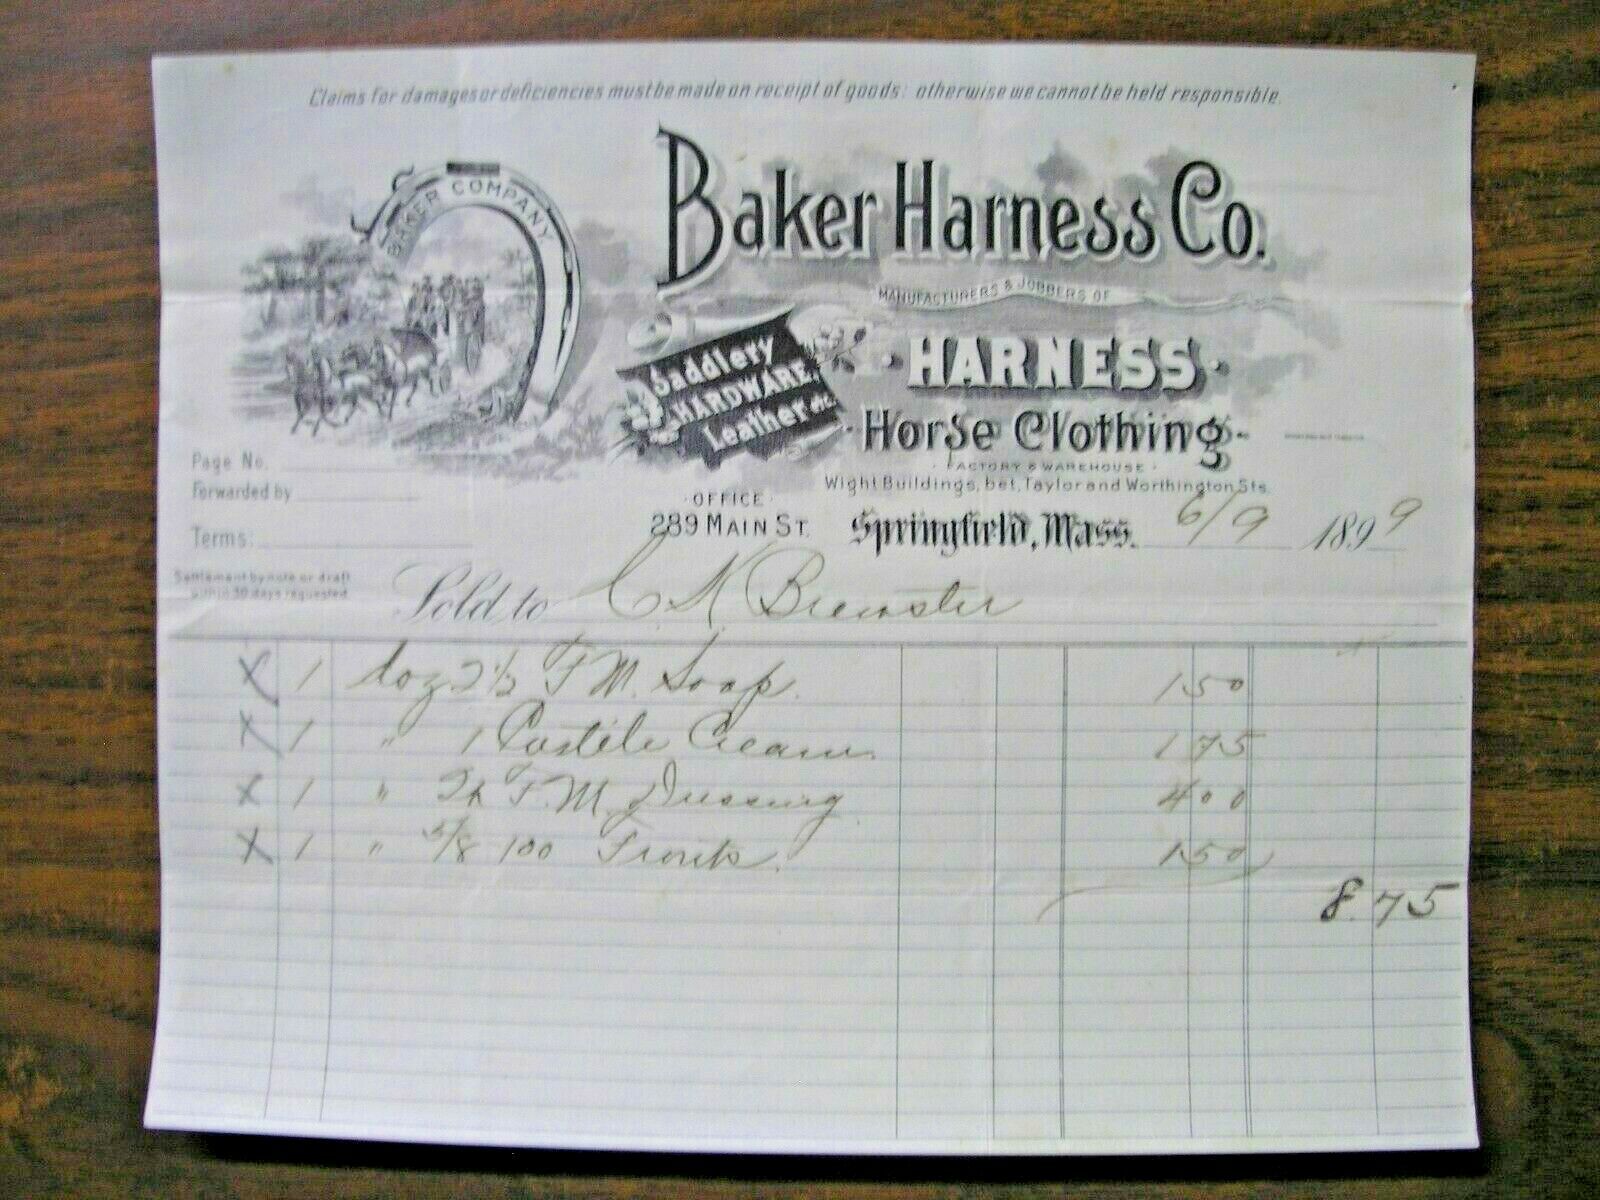 Claims for damages or deficiencies must be made on receipt of goods: otherwise we cannot be held responsible.
BAKER COMPANY
Baker Harness Co.
MANUFACTURERS & JOBBERS OF
Saddlery
HARDWARE,
Leather etc.
· HARNESS ·
· Horse Clothing ·
· FACTORY & WAREHOUSE ·
Wight Buildings, bet. Taylor and Worthington Sts.
Page No.
Forwarded by
Terms:
· OFFICE ·
289 MAIN ST.
Springfield, Mass. 6/9 1899
Settlement by note or draft
within 30 days requested
Sold to C K Brewster
X 1 doz 2½ F M. Soap. 1 50
X 1 " 1 Castile Cream. 1 75
X 1 " F. M. Dressing 4 00
X 1 " 5/8 100 Fronts. 1 50
8.75